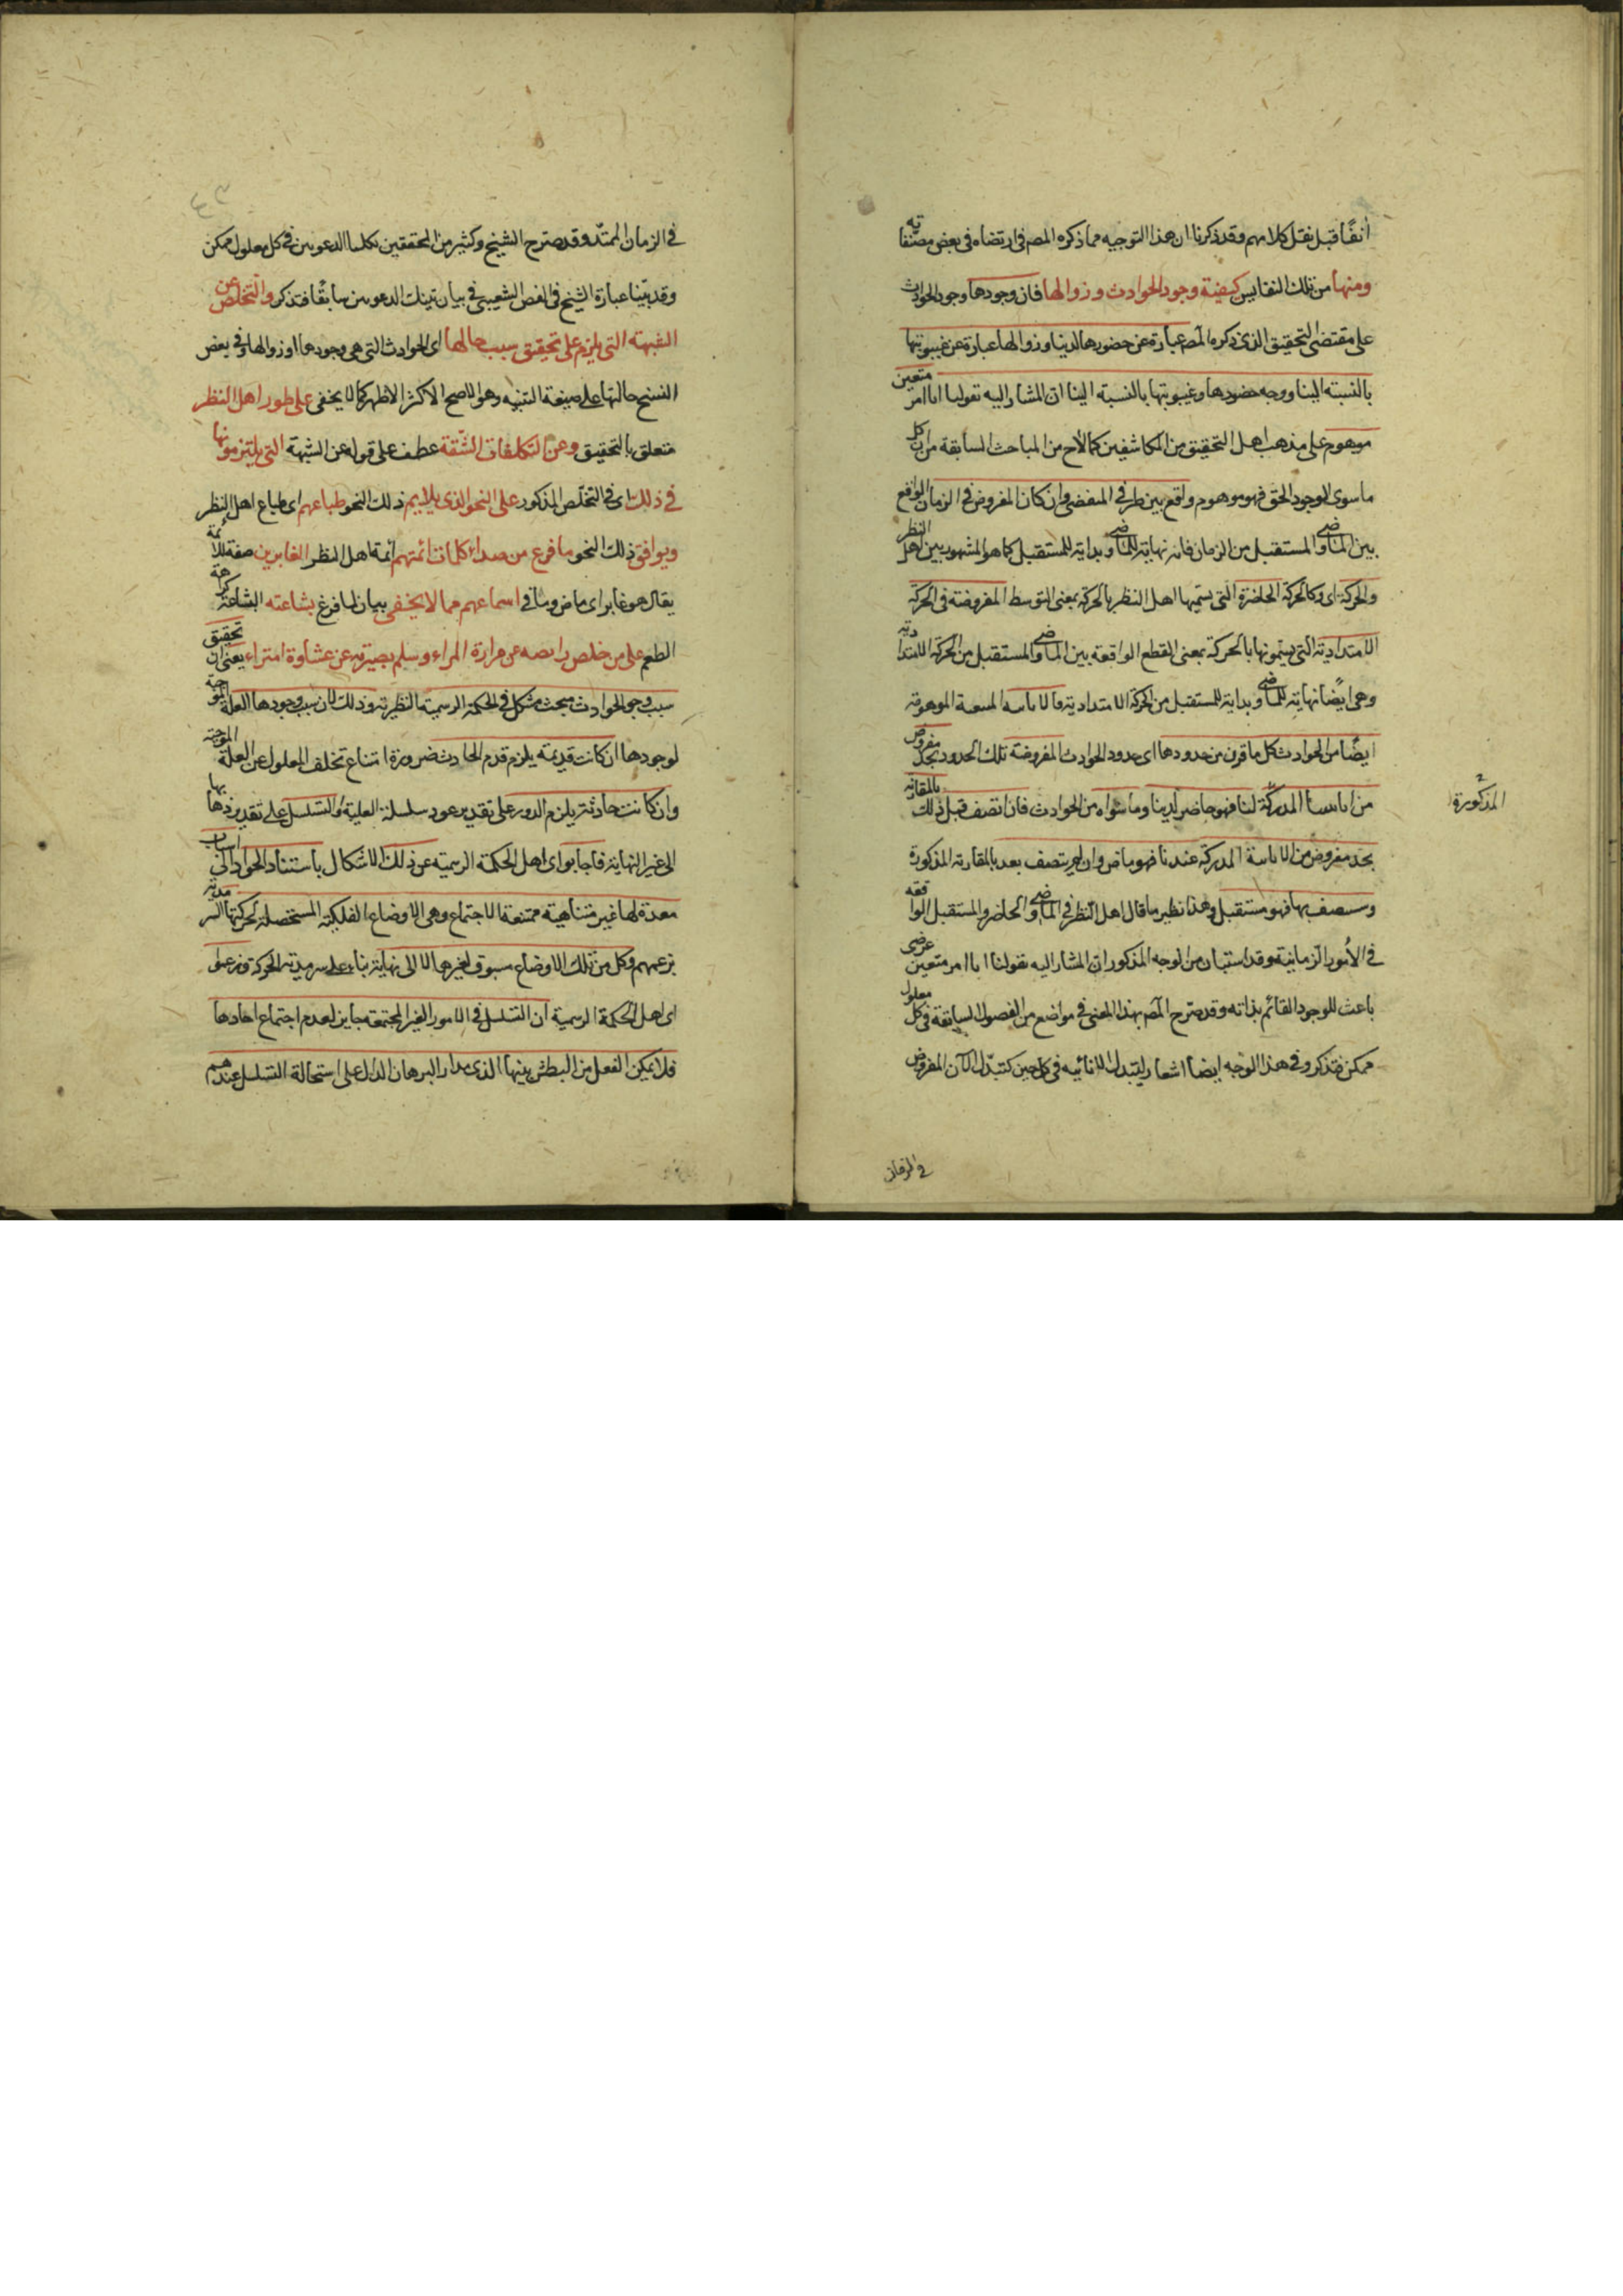 آنفًا قبل نقل كلامهم وقد ذكرنا ان هذا التوجيه مما ذكره المص فى ارتضاه فى بعض مصنفاته
ومنها من تلك النفايس كيفية وجود الحوادث وزوالها فان وجودها وجود الحوادث
على مقتضى التحقيق الذى ذكره المص عبارة عن حضورها لدينا وزوالها عبارة عن غيبوبتها
بالنسبة الينا ووجه حضورها وغيبوبتها بالنسبة الينا ان المشار اليه بقولنا انا امر متعين
موهوم على مذهب اهل التحقيق من المكاشفين كما لاح من المباحث السابقة من ان كل
ما سوى الوجود الحق فهو موهوم واقع بين طرفى وان كان المفروض فى الزمان الواقع
بين الماضى والمستقبل من الزمان فانه نهاية للماضى وبداية للمستقبل كما هو المشهور بين اهل النظر
والحركة اى وكالحركة الحاضرة التى يسميها اهل النظر بالحركة بمعنى التوسط المفروضة فى الحركة
الامتدادية التى يسمونها بالحركة بمعنى القطع الواقعة بين الماضى والمستقبل من الحركة الامتدادية
وهى ايضًا نهاية للماضى وبداية للمستقبل من الحركة الامتدادية الموهومة
ايضًا من الحوادث كل ما قرن من حدودها اى حدود الحوادث المفروضة تلك الحدود بحد مفروض
من المدركة لنا فهو حاضر لدينا وما سواه من الحوادث فان اتصف قبل ذلك بالمقارنة
المذكورة
بحد مفروض من المدركة عندنا فهو ماض وان لم يتصف بعد بالمقارنة المذكورة
وسيتصف بها فهو مستقبل وهذا نظير ما قال اهل النظر فى الماضى والحاضر والمستقبل الواقعة
فى الأمور الزمانية وقد استبان من الوجه المذكور ان المشار اليه بقولنا انا امر متعين عرضى
باعث للوجود القائم بذاته وقد صرح المص بهذا المعنى فى مواضع من الفصول السابقة فى كل معلول
ممكن فتذكر وفى هذا الوجه ايضا اشعار بتبدل فى كل حين كتبدل الآن المفروض
فى الزمان
فى الزمان الممتد وقد صرح الشيخ وكثير من المحققين بكلتا الدعويين فى كل معلول ممكن
وقد بينا عبارة الشيخ فى الفص الشعيبى فى بيان تينك الدعويين سابقًا فتذكر والتخلص عن
الشبهة التى يلزم على تحقيق سبب حالها اى الحوادث التى هى وجودها او زوالها وفى بعض
النسخ حالتها على صيغة التثنيه وهو الاصح الاكثر الاظهر كما لا يخفى على طور اهل النظر
متعلق بالتحقيق وعن التكلفات الشقة عطف على قوله عن الشبهة التى يلتزمونها
فى ذلك اى فى التخلص المذكور على النحو الذى يلايم ذلك النحو طباعهم اى طباع اهل النظر
ويوافق ذلك النحو ما فرع من صداء كلمات ائمتهم ائمة اهل النظر الغابرين صفة للائمة
يقال هو غابر اى ماض وباقى اسماعهم مما لا يخفى بيان لما فرغ بشاعته البشاعة كراهة
الطعم على من خلص عن مرارة المراء وسلم بصيرته عن عشاوة امتراء يعنى ان تحقيق
سبب وجود الحوادث مبحث مشكل فى الحكمة الرسمية النظرية وذلك لان سبب وجودها العلة الموجبة
لوجودها ان كانت قديمة يلزم قدم الحادث ضرورة امتناع تخلف المعلول عن العلة الموجبة
وان كانت حادثة يلزم الدور على تقدير عود سلسلة العلية او التسلسل على تقدير ذهابها
الى غير النهاية فاجابوا اى اهل الحكمة الرسمية عن ذلك الاشكال باستناد الحوادث الى اسباب
معدة لها غير متناهية ممتنعة الاجتماع وهى الاوضاع الفلكية المستحصلة لحركتها السرمدية
بزعمهم وكل من تلك الاوضاع مسبوق لغيرها لا الى نهاية بناء على سرمدية الحركة وزعموا
اى اهل الحكمة الرسمية ان التسلسل فى الامور الغير المجتمعة جايز لعدم اجتماع احادها
فلا يمكن الفعل من البطش بينها الذى مدار البرهان الدال على استحالة التسلسل عندهم